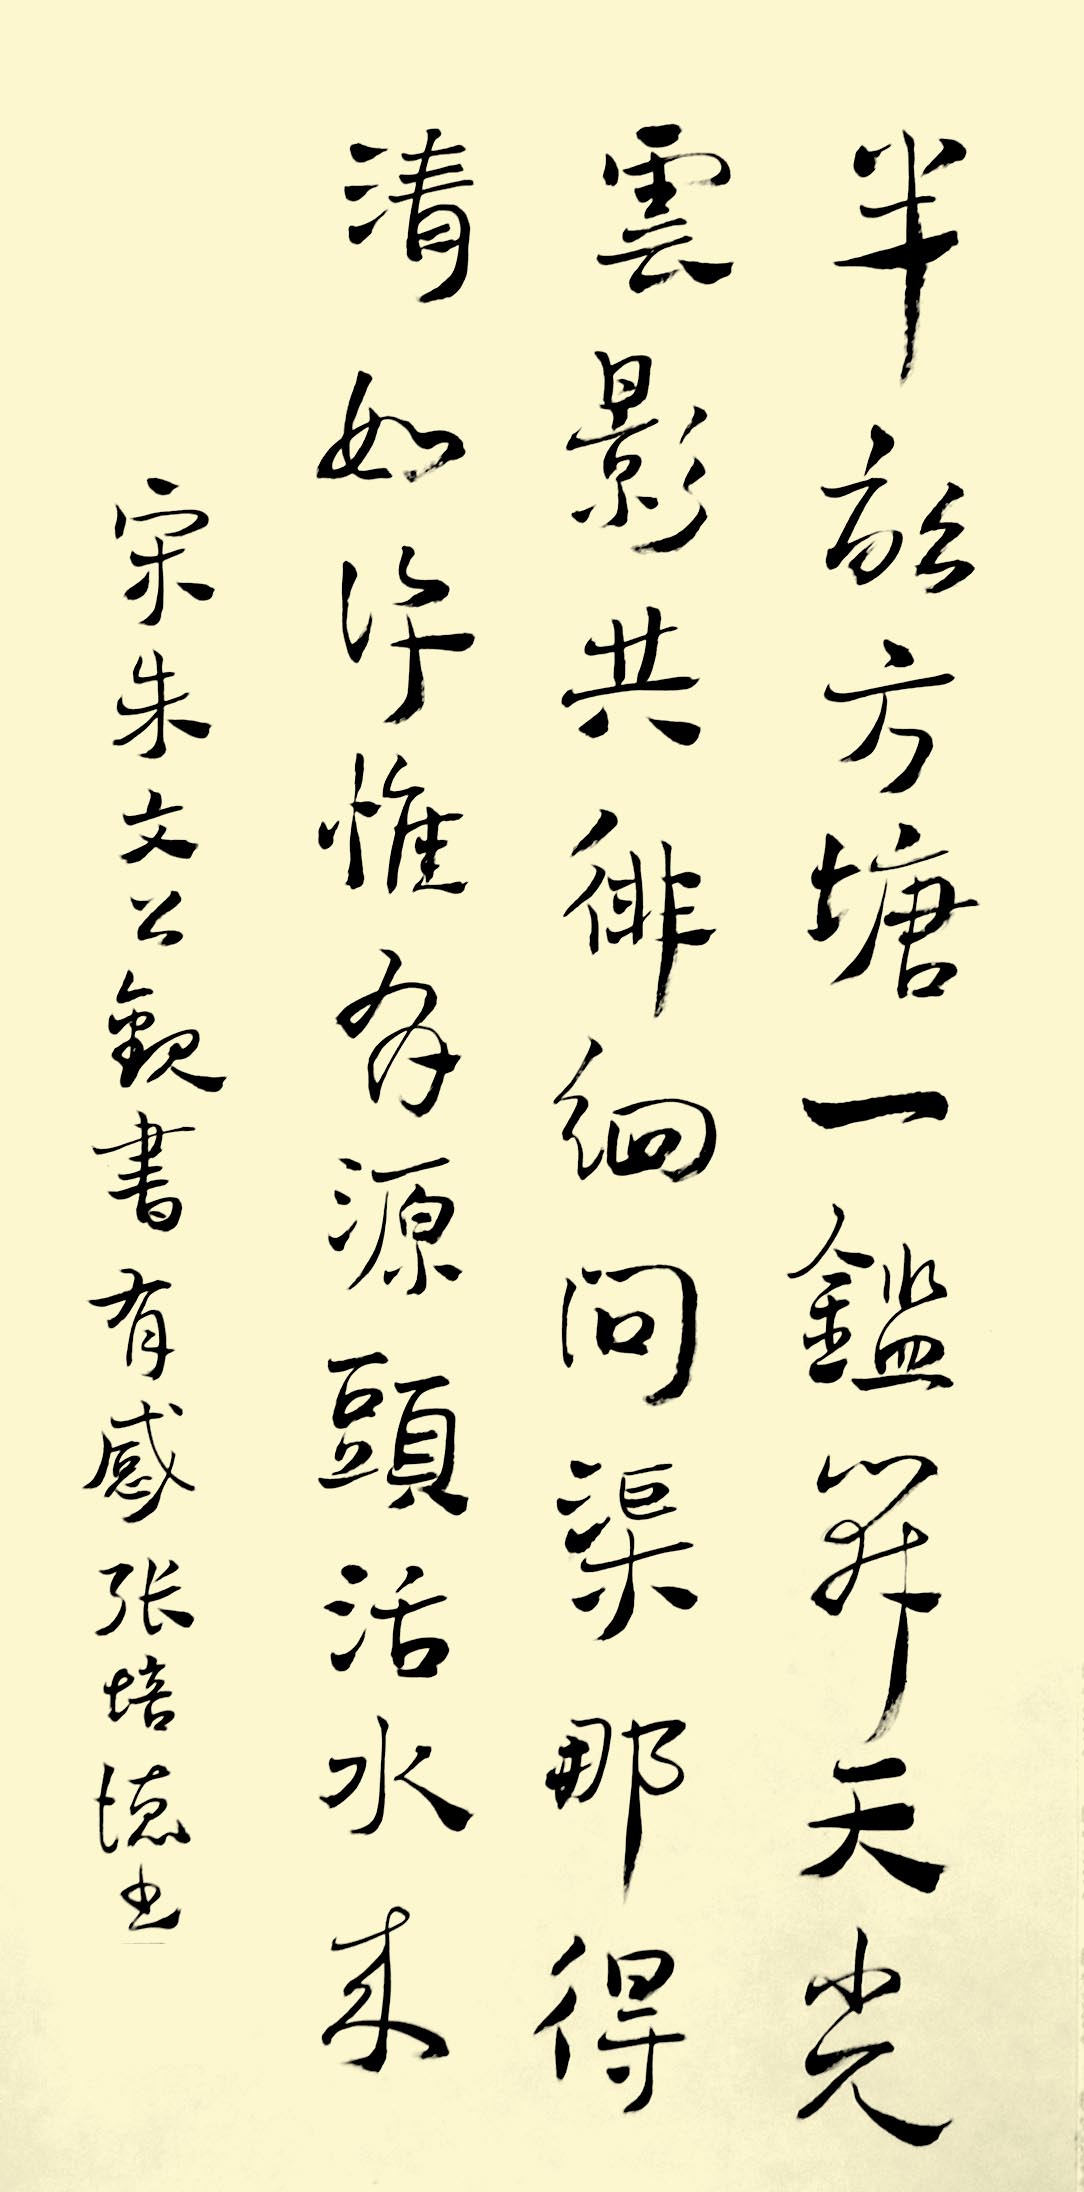 半畝方塘一鑑開天光
雲影共徘徊問渠那得
清如許惟有源頭活水来
宋朱文公觀書有感 张培德书